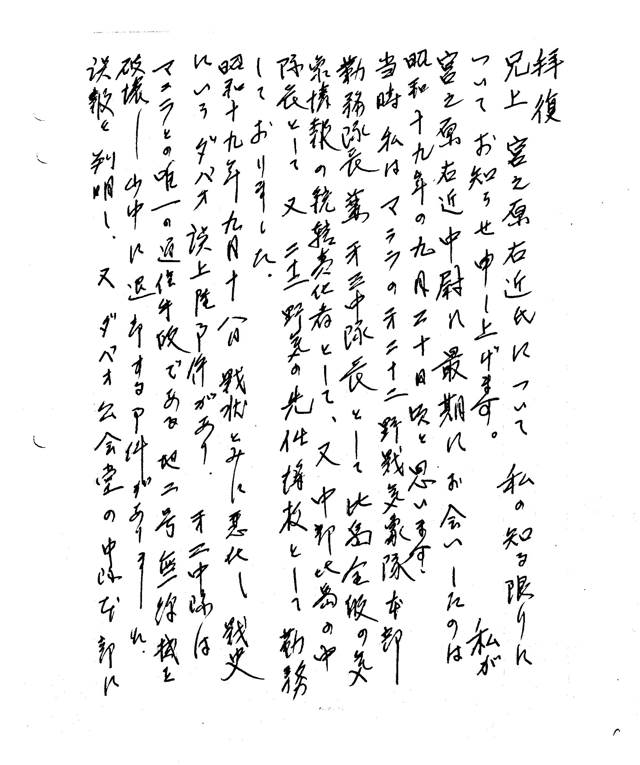 拝復
兄上 宮之原右近氏について 私の知る限りに
ついてお知らせ申し上げます。 私が
宮之原右近中尉に最期にお会いしたのは
昭和十九年の九月二十日頃と思います。
当時 私はマニラの第二十二野戦気象隊本部
勤務隊長兼第三中隊長として 比島全般の気
象情報の統轄責任者として、又 中部比島の中
隊長として 又 二十二野気の先任将校として勤務
しておりました。
昭和十九年九月十八日 戦状とみに悪化し 戦史
にいうダバオ誤上陸事件があり、 第二中隊は
マニラとの唯一の通信手段である地二号無線機を
破壊し山中に退却する事件がありましたれ、
誤報と判明し、又 ダバオ公会堂の中隊本部に